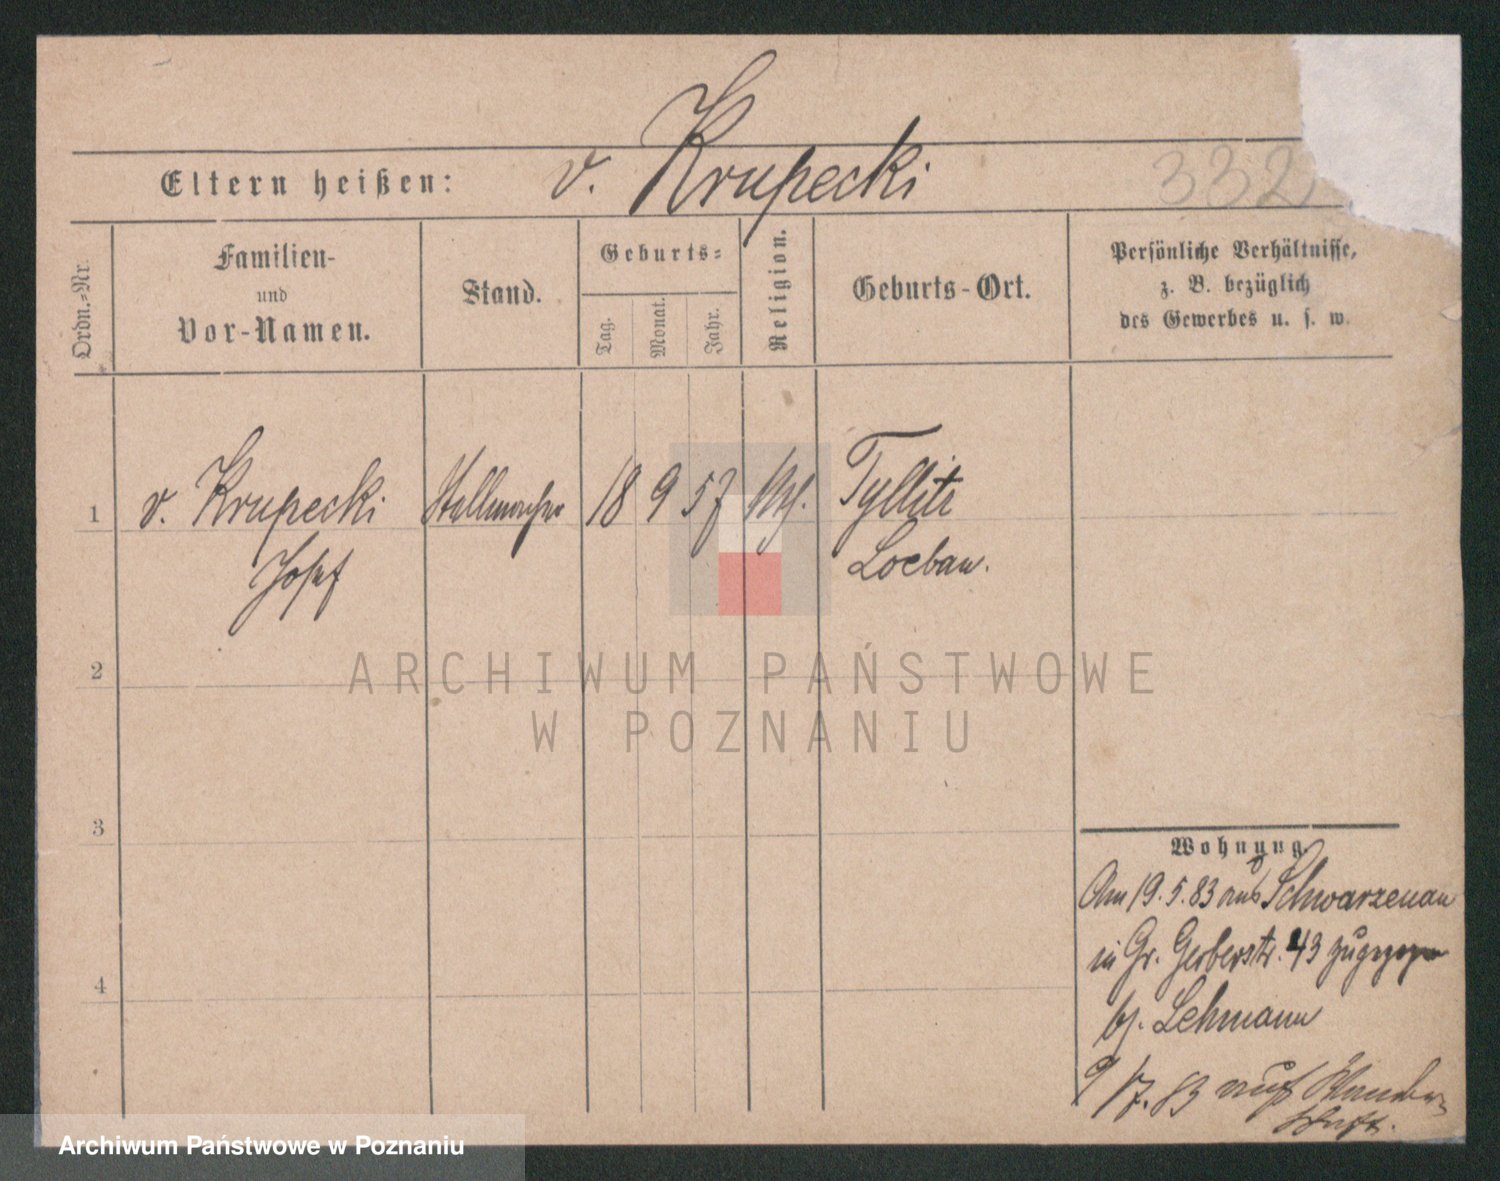 v. Krupecki
Eltern heißen:
332
Ordn.=Nr.
Familien-
und
Vor-Namen.
Stand.
Geburts=
Tag.
Monat.
Jahr.
Religion.
Geburts-Ort.
Persönliche Verhältnisse,
z. B. bezüglich
des Gewerbes u. s. w.
1
v. Krupecki
Josef
Stellmacher
18 9 57
Tyllitz
Loebau.
2
3
4
ARCHIWUM PAŃSTWOWE
W POZNANIU
Wohnung.
Am 19.5.83 aus Schwarzenau
in Gr. Gerberstr. 43 zugezogen
bj. Lehmann
9/7.83 auf Wander
schaft.
Archiwum Państwowe w Poznaniu